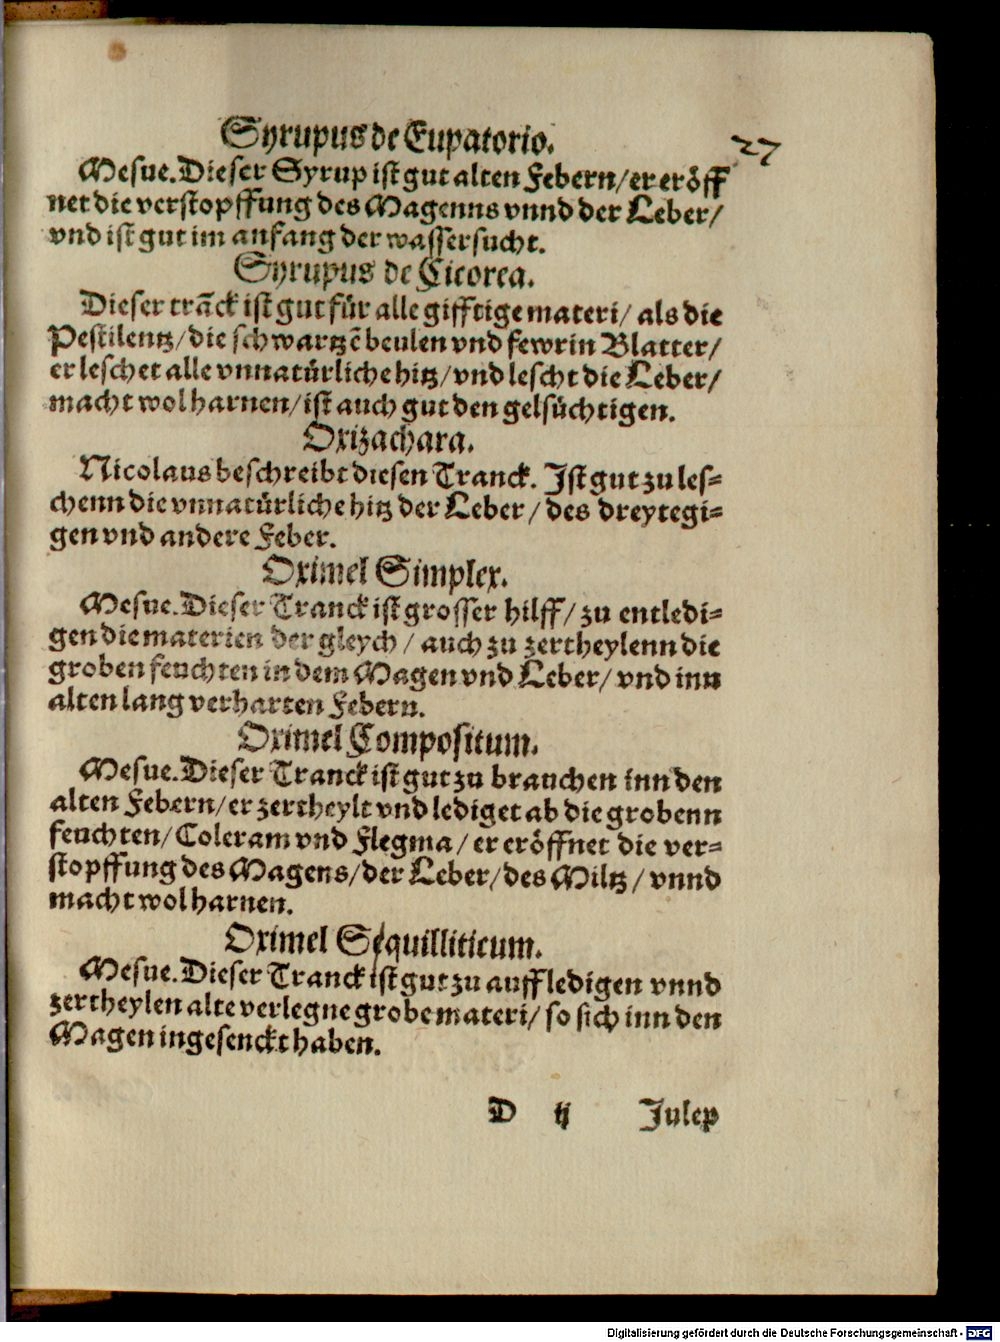 Syrupus de Eupatorio.
27
Mesue. Dieser Syrup ist gut alten Febern/ er eröff
net die verstopffung des Magenns vnnd der Leber/
vnd ist gut im anfang der wassersucht.
Syrupus de Cicorea.
Dieser trãck ist gut für alle gifftige materi/ als die
Pestilentz/ die schwartzẽ beulen vnd fewrin Blatter/
er leschet alle vnnatürliche hitz/ vnd lescht die Leber/
macht wol harnen/ ist auch gut den gelsüchtigen.
Oxizachara.
Nicolaus beschreibt diesen Tranck. Ist gut zu les-
chenn die vnnatürliche hitz der Leber/ des dreytegi-
gen vnd andere Feber.
Oximel Simplex.
Mesue. Dieser Tranck ist grosser hilff/ zu entledi-
gen die materien der gleych/ auch zu zertheylenn die
groben feuchten in dem Magen vnd Leber/ vnd inn
alten lang verharten Febern.
Oximel Compositum.
Mesue. Dieser Tranck ist gut zu brauchen inn den
alten Febern/ er zertheylt vnd lediget ab die grobenn
feuchten/ Coleram vnd Flegma/ er eröffnet die ver-
stopffung des Magens/ der Leber/ des Miltz/ vnnd
macht wol harnen.
Oximel Sequilliticum.
Mesue. Dieser Tranck ist gut zu auffledigen vnnd
zertheylen alte verlegne grobe materi/ so sich inn den
Magen ingesenckt haben.
D ij Julep
Digitalisierung gefördert durch die Deutsche Forschungsgemeinschaft - DFG